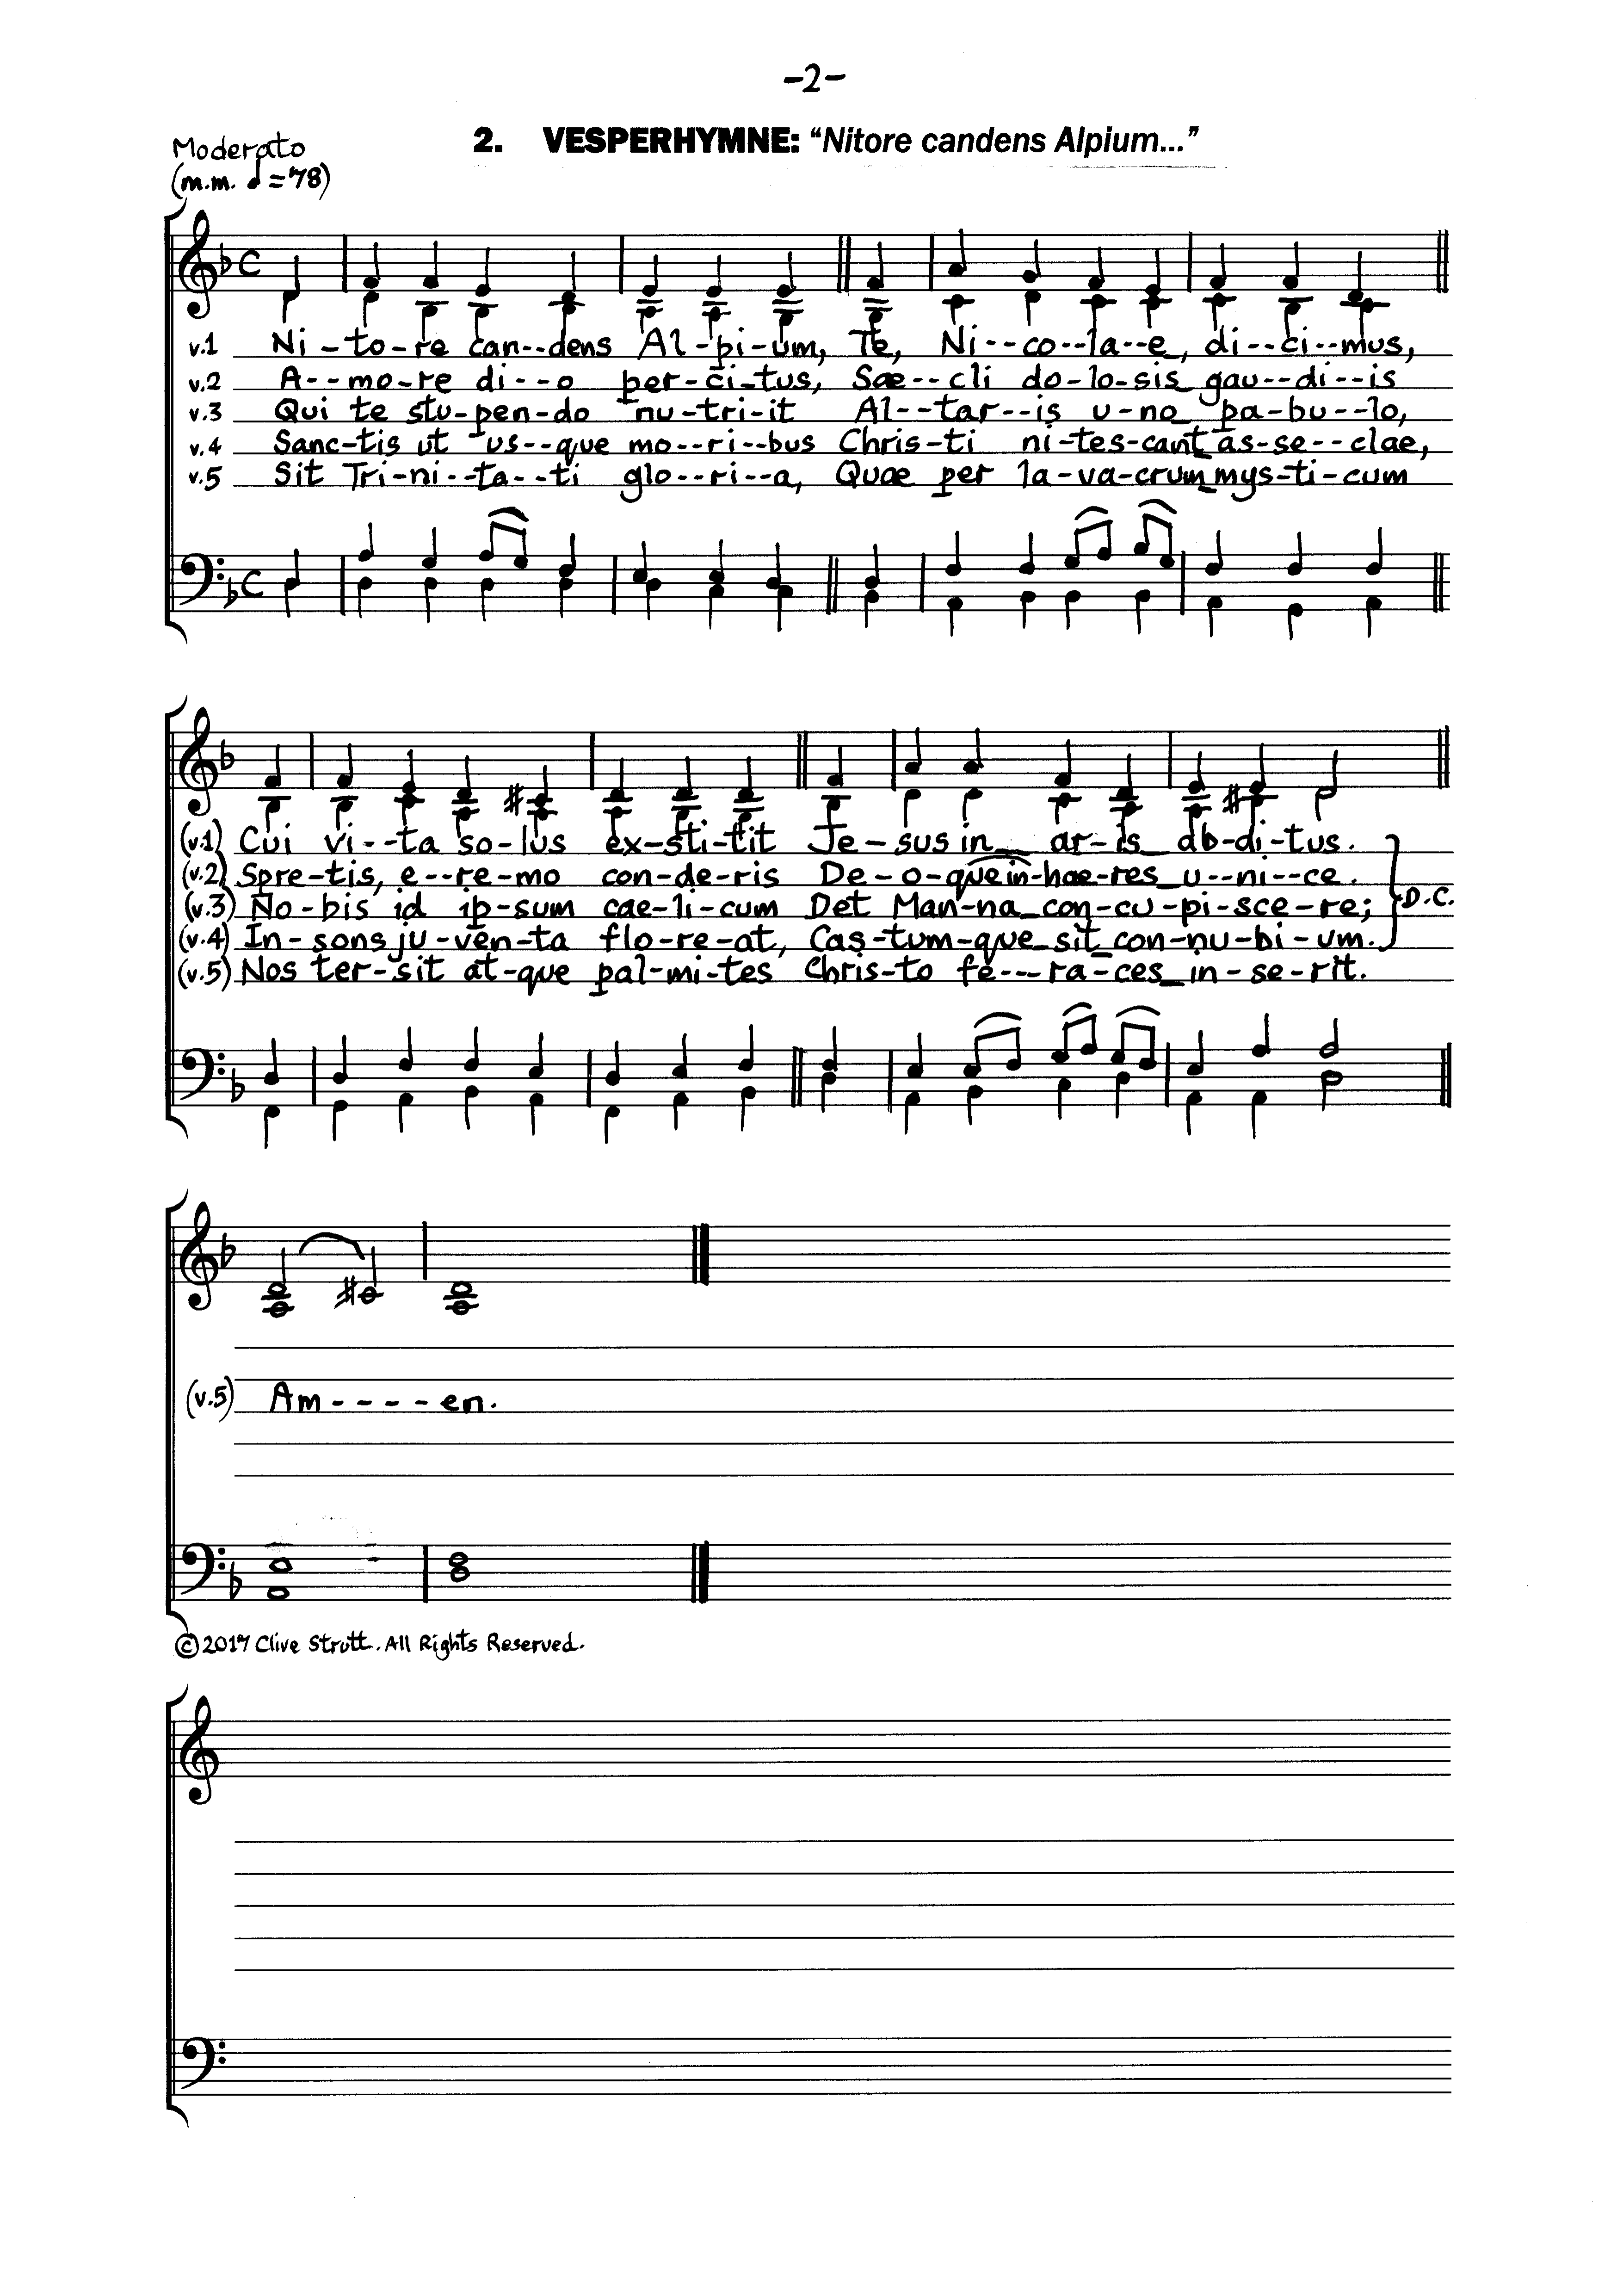 -2-
2. VESPERHYMNE: "Nitore candens Alpium..."
Moderato
(m.m. ♩=78)
v.1 Ni-to-re can--dens Al-pi-um, Te, Ni--co--la--e, di--ci--mus,
v.2 A--mo-re di--o per-ci-tus, Sæ--cli do-lo-sis gau--di--is
v.3 Qui te stu-pen-do nu-tri-it Al--tar--is u-no pa-bu--lo,
v.4 Sanc-tis ut us--que mo--ri--bus Chris-ti ni-tes-cant as-se--clae,
v.5 Sit Tri-ni--ta--ti glo--ri--a, Quæ per la-va-crum mys-ti-cum
(v.1) Cui vi--ta so-lus ex-sti-tit Je-sus in ar-is ab-di-tus.
(v.2) Spre-tis, e--re-mo con-de-ris De-o-que in-hae-res u--ni--ce.
(v.3) No-bis id ip-sum cae-li-cum Det Man-na con-cu-pi-sce-re; D.C.
(v.4) In-sons ju-ven-ta flo-re-at, Cas-tum-que sit con-nu-bi-um.
(v.5) Nos ter-sit at-que pal-mi-tes Chris-to fe---ra-ces in-se-rit.
(v.5) Am----en.
©2017 Clive Strutt. All Rights Reserved.